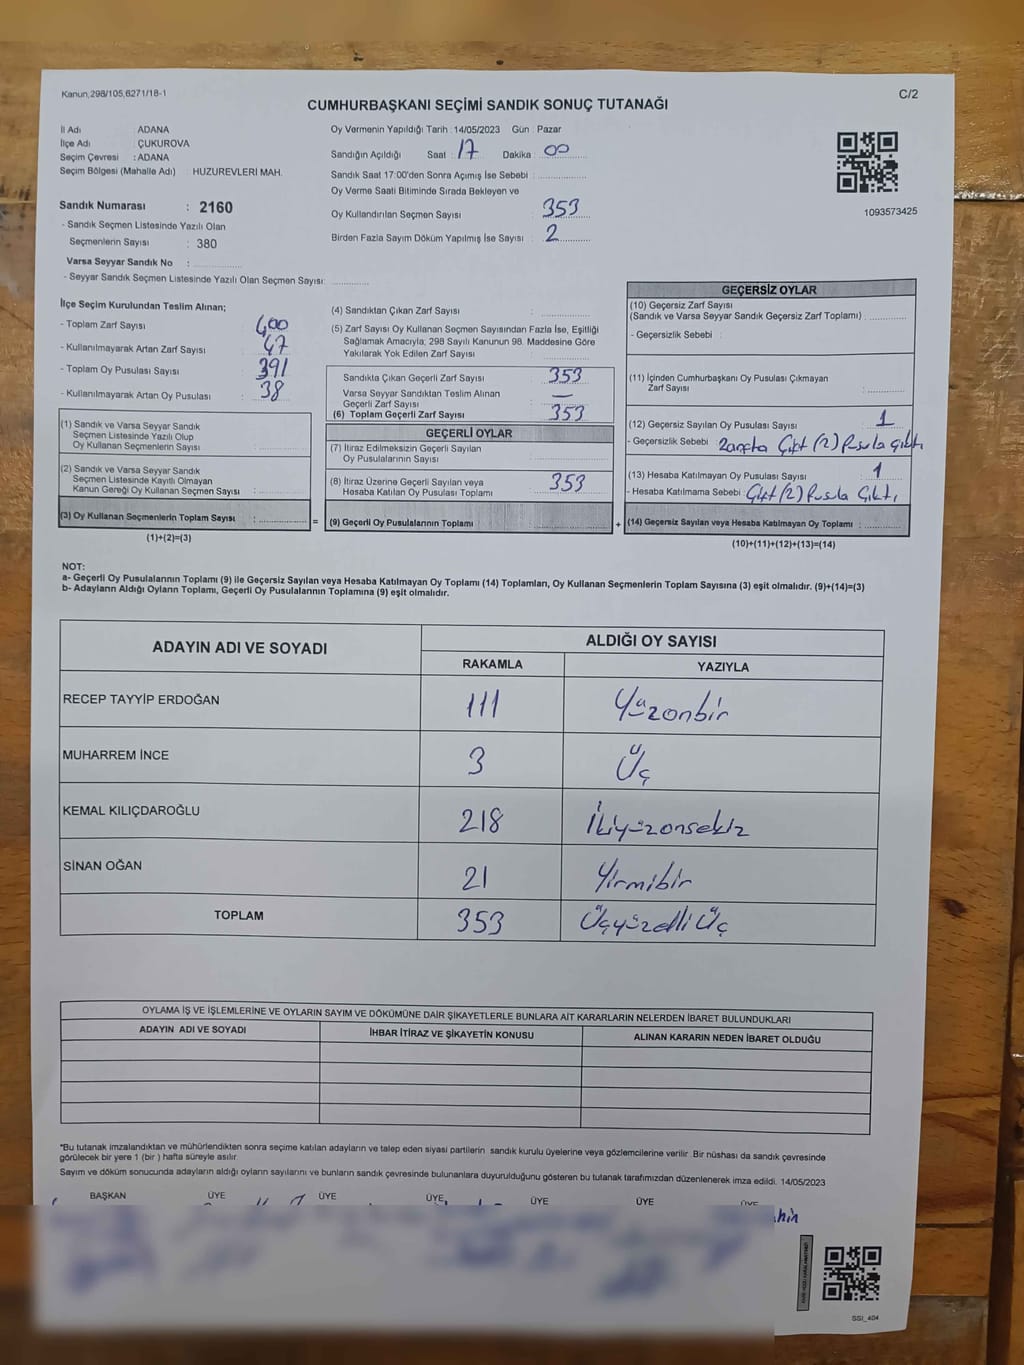 Kanun,298/105,6271/18-1
C/2
CUMHURBAŞKANI SEÇİMİ SANDIK SONUÇ TUTANAĞI
İl Adı : ADANA
İlçe Adı : ÇUKUROVA
Seçim Çevresi : ADANA
Seçim Bölgesi (Mahalle Adı) HUZUREVLERİ MAH.
Sandık Numarası : 2160
- Sandık Seçmen Listesinde Yazılı Olan
Seçmenlerin Sayısı : 380
Varsa Seyyar Sandık No :
- Seyyar Sandık Seçmen Listesinde Yazılı Olan Seçmen Sayısı:
Oy Vermenin Yapıldığı Tarih : 14/05/2023 Gün : Pazar
Sandığın Açıldığı Saat : 17 Dakika : 00
Sandık Saat 17:00'den Sonra Açımış İse Sebebi :
Oy Verme Saati Bitiminde Sırada Bekleyen ve
Oy Kullandırılan Seçmen Sayısı : 353
Birden Fazla Sayım Döküm Yapılmış İse Sayısı : 2
1093573425
İlçe Seçim Kurulundan Teslim Alınan;
- Toplam Zarf Sayısı : 400
- Kullanılmayarak Artan Zarf Sayısı : 47
- Toplam Oy Pusulası Sayısı : 391
- Kullanılmayarak Artan Oy Pusulası : 38
(1) Sandık ve Varsa Seyyar Sandık
Seçmen Listesinde Yazılı Olup
Oy Kullanan Seçmenlerin Sayısı :
(2) Sandık ve Varsa Seyyar Sandık
Seçmen Listesinde Kayıtlı Olmayan
Kanun Gereği Oy Kullanan Seçmen Sayısı :
(3) Oy Kullanan Seçmenlerin Toplam Sayısı :
(1)+(2)=(3)
=
(4) Sandıktan Çıkan Zarf Sayısı :
(5) Zarf Sayısı Oy Kullanan Seçmen Sayısından Fazla İse, Eşitliği
Sağlamak Amacıyla, 298 Sayılı Kanunun 98. Maddesine Göre
Yakılarak Yok Edilen Zarf Sayısı :
Sandıkta Çıkan Geçerli Zarf Sayısı : 353
Varsa Seyyar Sandıktan Teslim Alınan
Geçerli Zarf Sayısı : —
(6) Toplam Geçerli Zarf Sayısı : 353
GEÇERLİ OYLAR
(7) İtiraz Edilmeksizin Geçerli Sayılan
Oy Pusulalarının Sayısı :
(8) İtiraz Üzerine Geçerli Sayılan veya
Hesaba Katılan Oy Pusulası Toplamı : 353
(9) Geçerli Oy Pusulalarının Toplamı :
+
GEÇERSİZ OYLAR
(10) Geçersiz Zarf Sayısı
(Sandık ve Varsa Seyyar Sandık Geçersiz Zarf Toplamı) :
- Geçersizlik Sebebi :
(11) İçinden Cumhurbaşkanı Oy Pusulası Çıkmayan
Zarf Sayısı :
(12) Geçersiz Sayılan Oy Pusulası Sayısı : 1
- Geçersizlik Sebebi : Zarfta Çift (2) Pusula çıktı
(13) Hesaba Katılmayan Oy Pusulası Sayısı : 1
- Hesaba Katılmama Sebebi : Çift (2) Pusula Çıktı,
(14) Geçersiz Sayılan veya Hesaba Katılmayan Oy Toplamı :
(10)+(11)+(12)+(13)=(14)
NOT:
a- Geçerli Oy Pusulalarının Toplamı (9) ile Geçersiz Sayılan veya Hesaba Katılmayan Oy Toplamı (14) Toplamları, Oy Kullanan Seçmenlerin Toplam Sayısına (3) eşit olmalıdır. (9)+(14)=(3)
b- Adayların Aldığı Oyların Toplamı, Geçerli Oy Pusulalarının Toplamına (9) eşit olmalıdır.
ADAYIN ADI VE SOYADI ALDIĞI OY SAYISI
RAKAMLA YAZIYLA
RECEP TAYYİP ERDOĞAN 111 Yüzonbir
MUHARREM İNCE 3 Üç
KEMAL KILIÇDAROĞLU 218 İkiyüzonsekiz
SİNAN OĞAN 21 Yirmibir
TOPLAM 353 Üçyüzelli Üç
OYLAMA İŞ VE İŞLEMLERİNE VE OYLARIN SAYIM VE DÖKÜMÜNE DAİR ŞİKAYETLERLE BUNLARA AİT KARARLARIN NELERDEN İBARET BULUNDUKLARI
ADAYIN ADI VE SOYADI İHBAR İTİRAZ VE ŞİKAYETİN KONUSU ALINAN KARARIN NEDEN İBARET OLDUĞU
*Bu tutanak imzalandıktan ve mühürlendikten sonra seçime katılan adayların ve talep eden siyasi partilerin sandık kurulu üyelerine veya gözlemcilerine verilir. Bir nüshası da sandık çevresinde
görülecek bir yere 1 (bir ) hafta süreyle asılır.
Sayım ve döküm sonucunda adayların aldığı oyların sayılarını ve bunların sandık çevresinde bulunanlara duyurulduğunu gösteren bu tutanak tarafımızdan düzenlenerek imza edildi. 14/05/2023
BAŞKAN ÜYE ÜYE ÜYE ÜYE ÜYE ÜYE
SSI_404